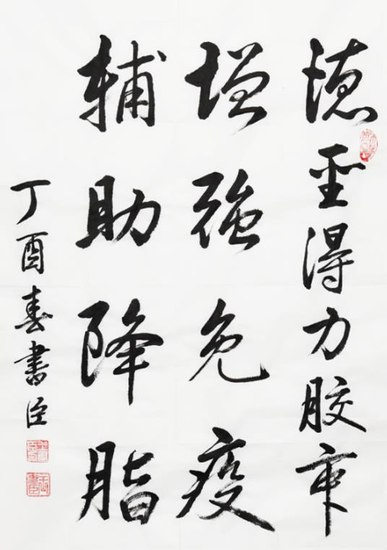 德圣得力胶囊
增強免疫
輔助降脂
丁酉春書臣